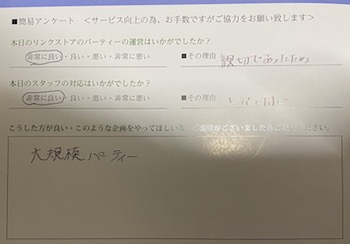 ■簡易アンケート　＜サービス向上の為、お手数ですがご協力をお願い致します＞
本日のリンクストアのパーティーの運営はいかがでしたか？
非常に良い・良い・悪い・非常に悪い　■その理由　親切であったため
本日のスタッフの対応はいかがでしたか？
非常に良い・良い・悪い・非常に悪い　■その理由
こうした方が良い・このような企画をやってほしいなどご意見がございましたらご記入ください。
大規模パーティー